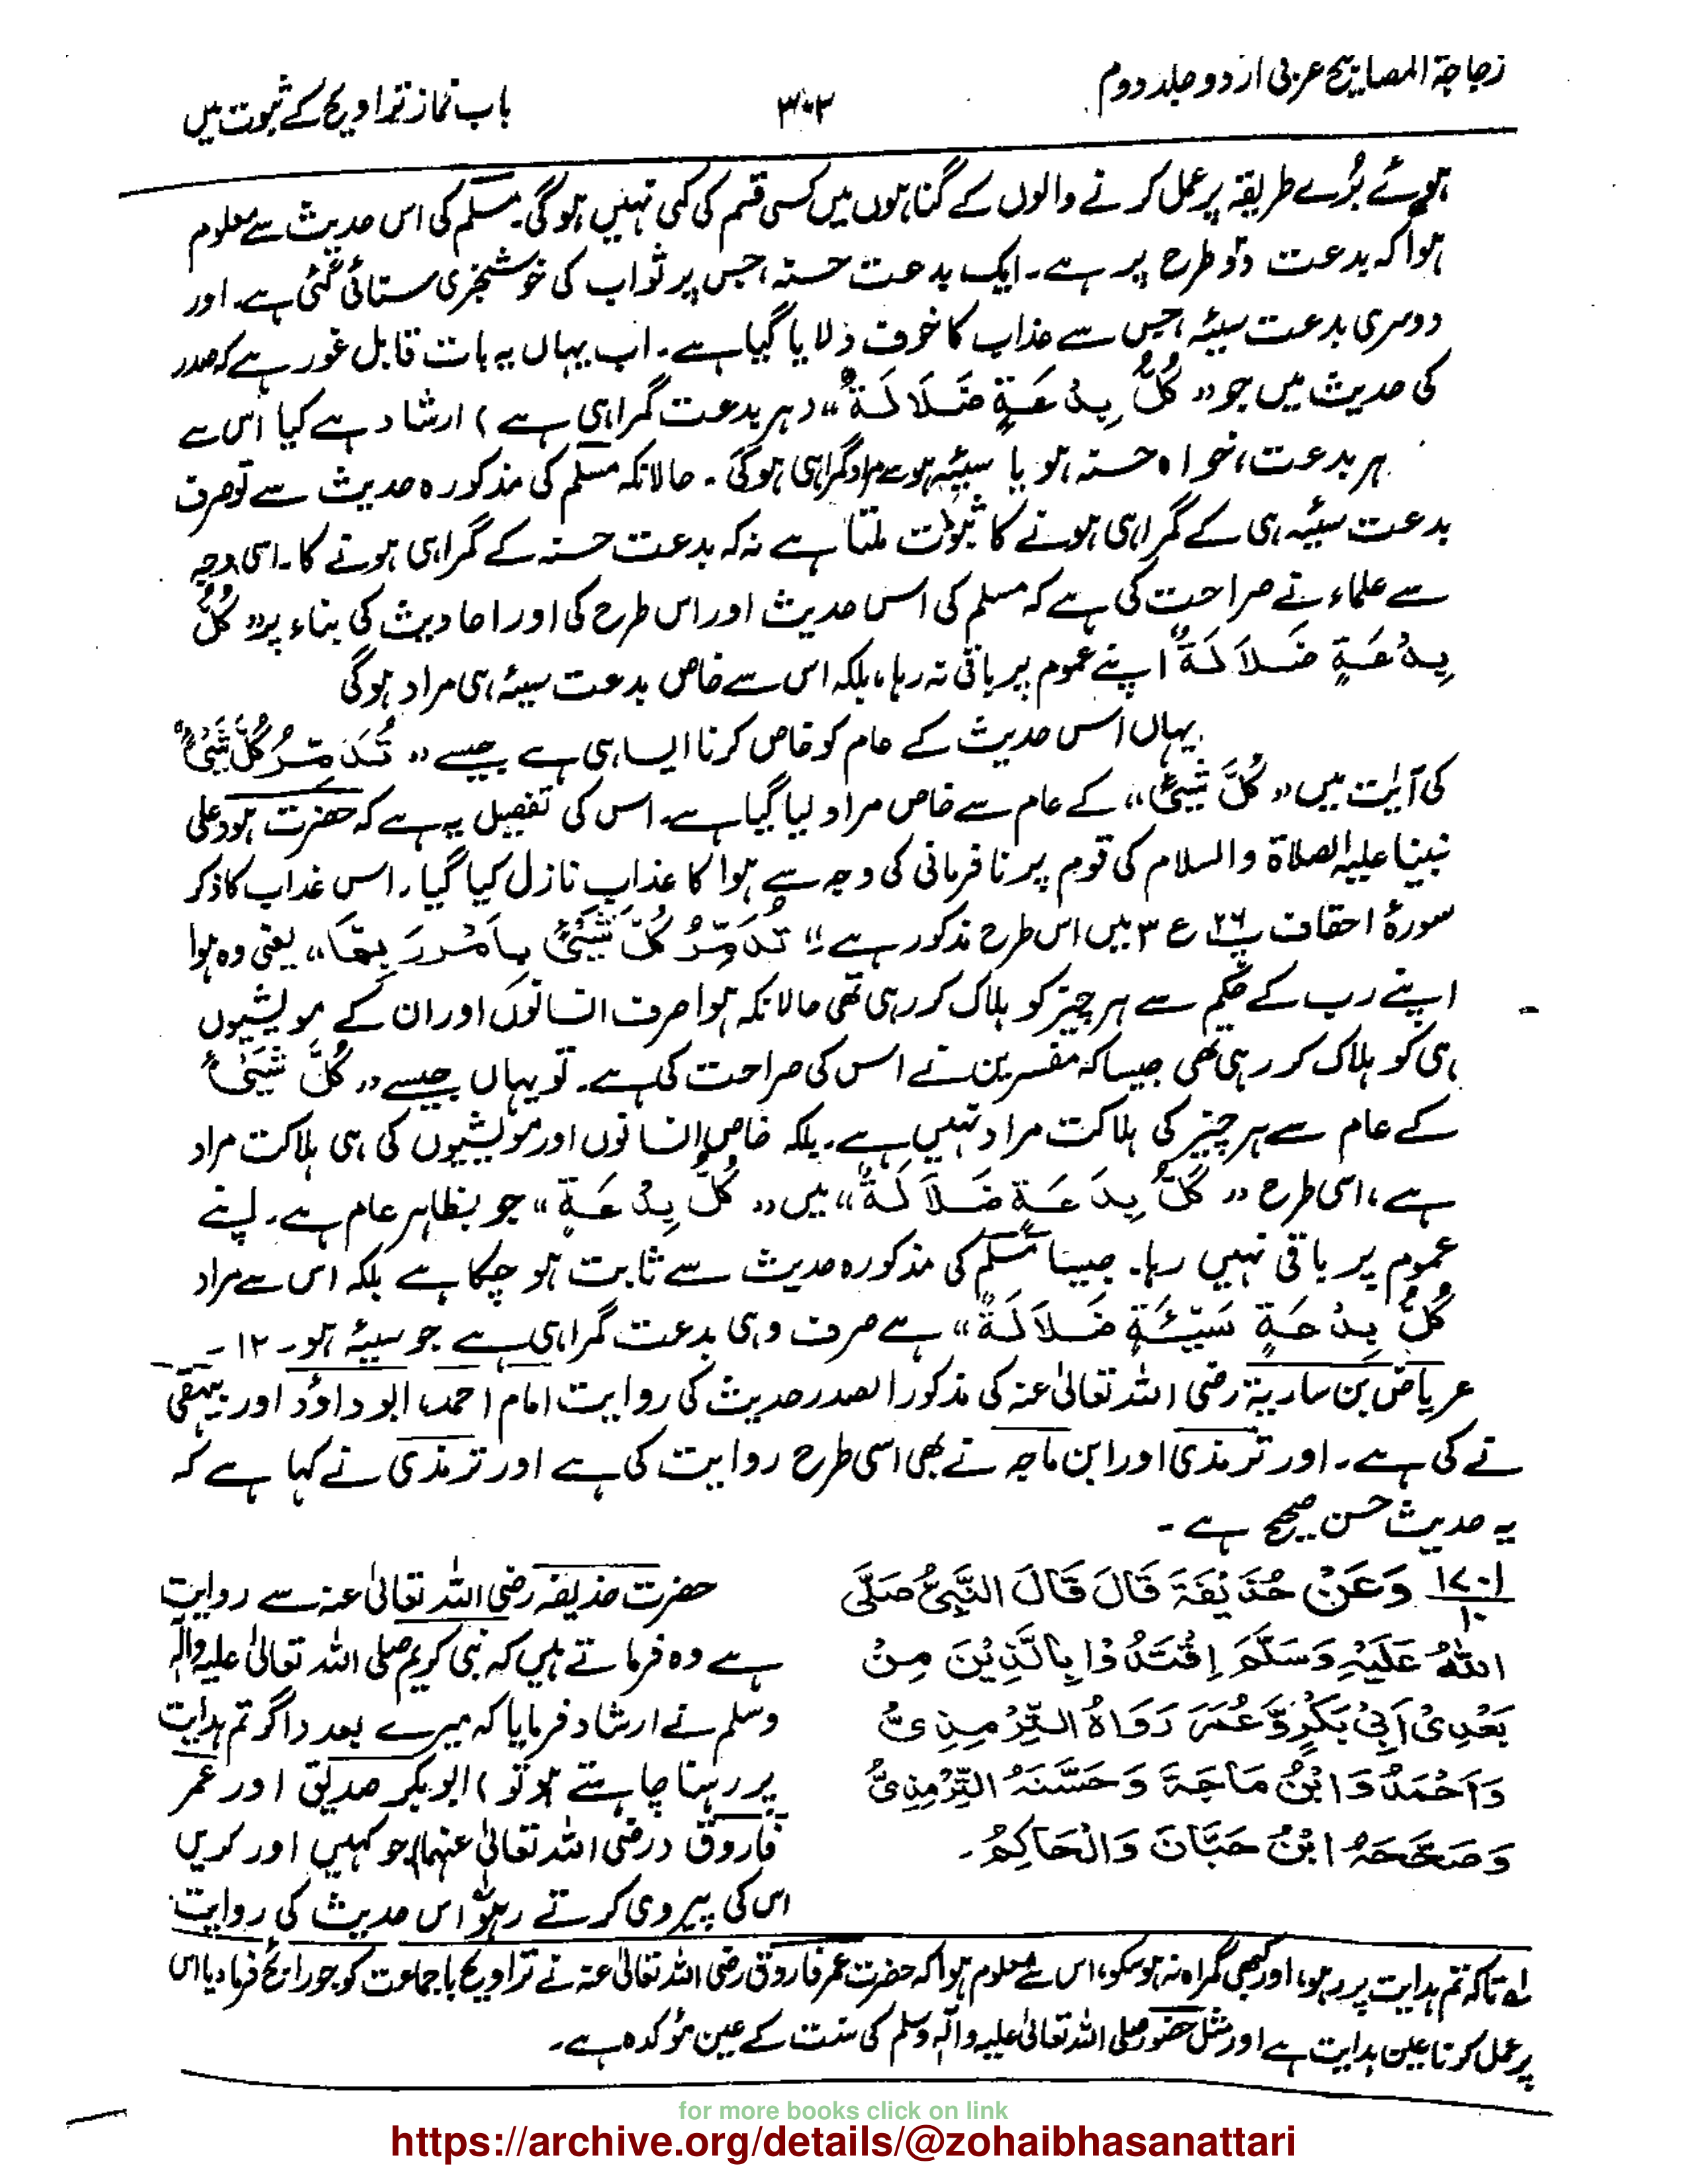 زجاجۃ المصابیح عربی اردو جلد دوم
۳۰۲
باب نماز تراویح کے ثبوت میں
ہوئے بُرے طریقہ پر عمل کرنے والوں کے گناہوں میں کسی قسم کی کمی نہیں ہوگی۔ مسلم کی اس حدیث سے معلوم
ہوا کہ بدعت دو طرح پر ہے۔ ایک بدعت حسنہ، جس پر ثواب کی خوشخبری سنائی گئی ہے۔ اور
دوسری بدعت سیئہ، جس سے عذاب کا خوف دلایا گیا ہے۔ اب یہاں یہ بات قابل غور ہے کہ صدر
کی حدیث میں جو ”کُلُّ بِدْعَةٍ ضَلَالَةٌ“ (ہر بدعت گمراہی ہے) ارشاد ہے کیا اس سے
ہر بدعت، خواہ حسنہ ہو یا سیئہ ہو سے مراد گمراہی ہوگی۔ حالانکہ مسلم کی مذکورہ حدیث سے تو صرف
بدعت سیئہ ہی کے گمراہی ہونے کا ثبوت ملتا ہے نہ کہ بدعت حسنہ کے گمراہی ہونے کا۔ اسی وجہ
سے علماء نے صراحت کی ہے کہ مسلم کی اس حدیث اور اس طرح کی اور احادیث کی بناء پر ”کُلُّ
بِدْعَةٍ ضَلَالَةٌ“ اپنے عموم پر باقی نہ رہا، بلکہ اس سے خاص بدعت سیئہ ہی مراد ہوگی
یہاں اس حدیث کے عام کو خاص کرنا ایسا ہی ہے جیسے ”تُدَمِّرُ کُلَّ شَیْئٍ“
کی آیت میں ”کُلَّ شَیْئٍ“ کے عام سے خاص مراد لیا گیا ہے۔ اس کی تفصیل یہ ہے کہ حضرت ہود علی
نبینا علیہ الصلاۃ والسلام کی قوم پر نافرمانی کی وجہ سے ہوا کا عذاب نازل کیا گیا۔ اس عذاب کا ذکر
سورۂ احقاف پ ۲۶ ع ۳ میں اس طرح مذکور ہے ”تُدَمِّرُ کُلَّ شَیْئٍ بِاَمْرِ رَبِّهَا“ یعنی وہ ہوا
اپنے رب کے حکم سے ہر چیز کو ہلاک کر رہی تھی حالانکہ ہوا صرف انسانوں اور ان کے مویشیوں
ہی کو ہلاک کر رہی تھی جیسا کہ مفسرین نے اس کی صراحت کی ہے۔ تو یہاں جیسے ”کُلَّ شَیْئٍ“
کے عام سے ہر چیز کی ہلاکت مراد نہیں ہے۔ بلکہ خاص انسانوں اور مویشیوں کی ہی ہلاکت مراد
ہے، اسی طرح ”کُلُّ بِدْعَةٍ ضَلَالَةٌ“ میں ”کُلُّ بِدْعَةٍ“ جو بظاہر عام ہے۔ اپنے
عموم پر باقی نہیں رہا۔ جیسا مسلم کی مذکورہ حدیث سے ثابت ہو چکا ہے بلکہ اس سے مراد
کُلُّ بِدْعَةٍ سَیِّئَةٍ ضَلَالَةٌ“ ہے صرف وہی بدعت گمراہی ہے جو سیئہ ہو۔ ۱۲۔
عریاض بن ساریۃ رضی اللہ تعالیٰ عنہ کی مذکور الصدر حدیث کی روایت امام احمد، ابو داؤد اور بیہقی
نے کی ہے۔ اور ترمذی اور ابن ماجہ نے بھی اسی طرح روایت کی ہے اور ترمذی نے کہا ہے کہ
یہ حدیث حسن صحیح ہے۔
۱۷۰۱/۱۰ وَعَنْ حُذَیْفَةَ قَالَ قَالَ النَّبِیُّ صَلَّی
اللّٰهُ عَلَیْہِ وَسَلَّمَ اِقْتَدُوْا بِالَّذَیْنَ مِنْ
بَعْدِیْ اَبِیْ بَکْرٍ وَّعُمَرَ رَوَاہُ التِّرْمِذِیُّ
وَاَحْمَدُ وَابْنُ مَاجَةَ وَحَسَّنَہُ التِّرْمِذِیُّ
وَصَحَّحَہُ ابْنُ حَبَّانَ وَالْحَاکِمُ۔
حضرت حذیفہ رضی اللہ تعالیٰ عنہ سے روایت
ہے وہ فرماتے ہیں کہ نبی کریم صلی اللہ تعالیٰ علیہ وآلہٖ
وسلم نے ارشاد فرمایا کہ میرے بعد (اگر تم ہدایت
پر رہنا چاہتے ہو تو) ابوبکر صدیق اور عمر
فاروق (رضی اللہ تعالیٰ عنہما) جو کہیں اور کریں
اس کی پیروی کرتے رہو اس حدیث کی روایت
لہ تاکہ تم ہدایت پر رہو، اور کبھی گمراہ نہ ہو سکو، اس سے معلوم ہوا کہ حضرت عمر فاروق رضی اللہ تعالیٰ عنہ نے تراویح با جماعت کو جو رائج فرما دیا اس
پر عمل کرنا عین ہدایت ہے اور مثل حضور صلی اللہ تعالیٰ علیہ وآلہٖ وسلم کی سنت کے عین مؤکدہ ہے۔
for more books click on link
https://archive.org/details/@zohaibhasanattari